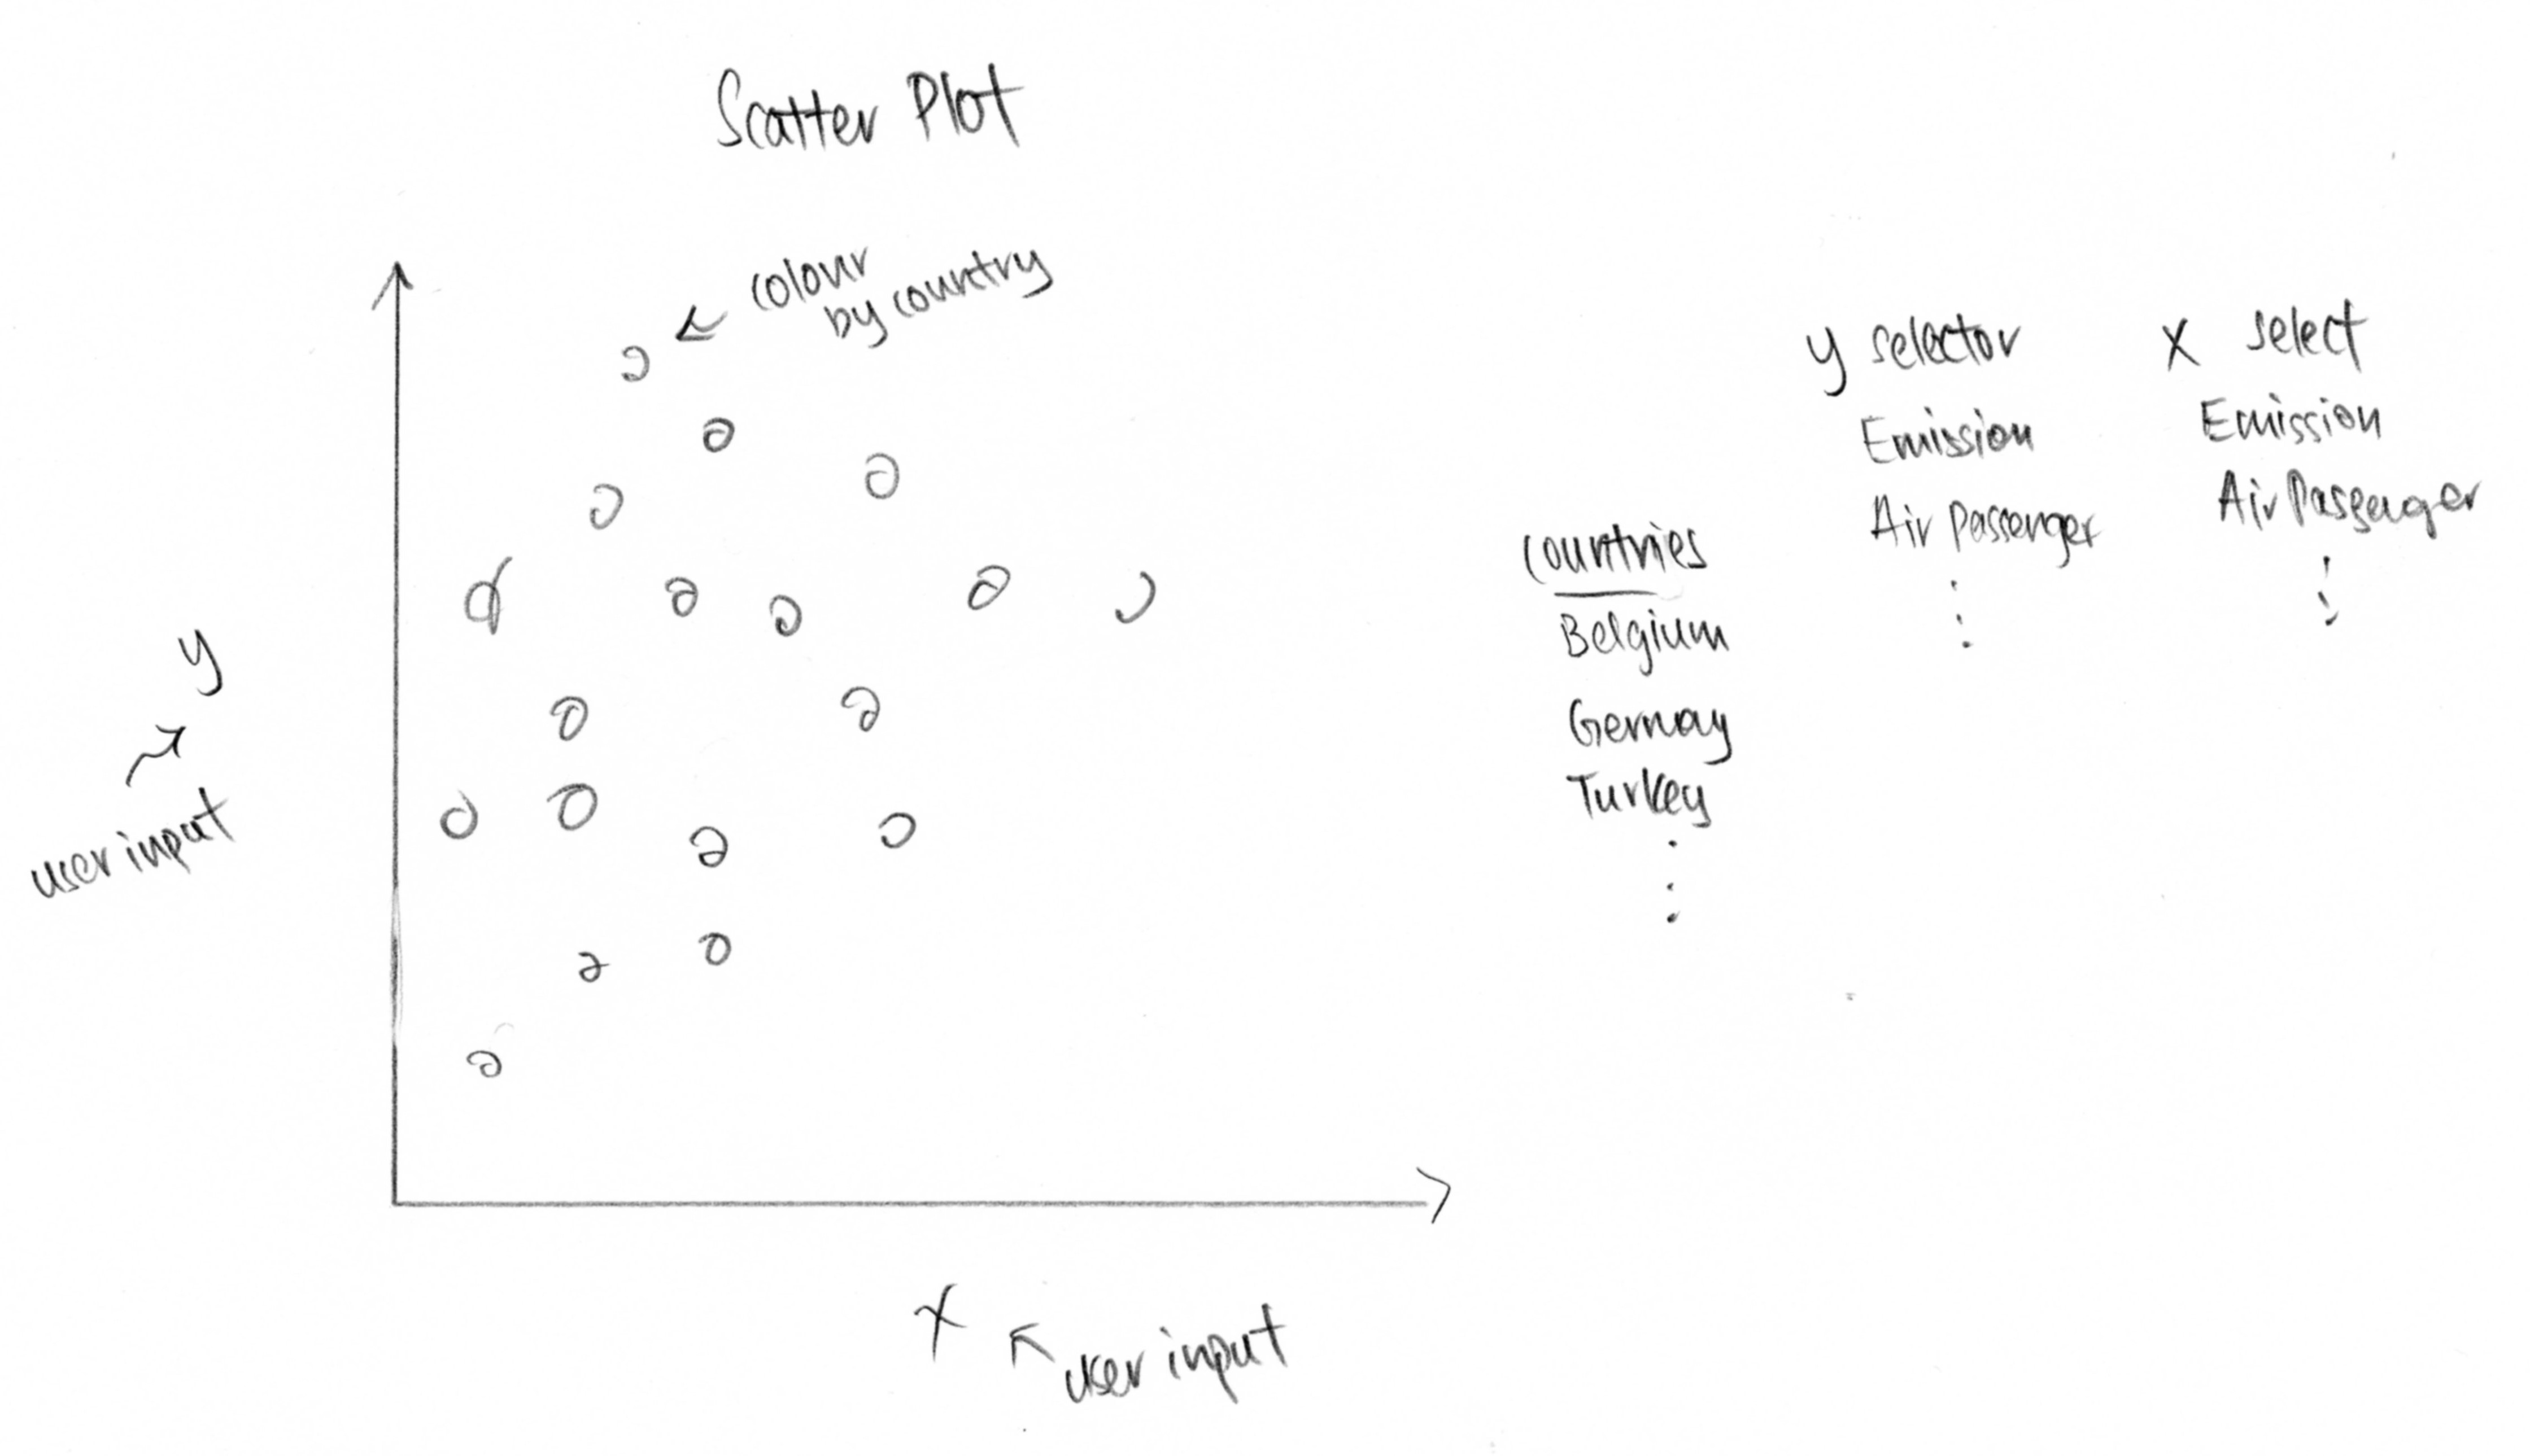 Scatter Plot
colour
by country
y
user input
x
user input
countries
Belgium
Gernay
Turkey
y selector
Emission
Air Passenger
X select
Emission
Air Passenger